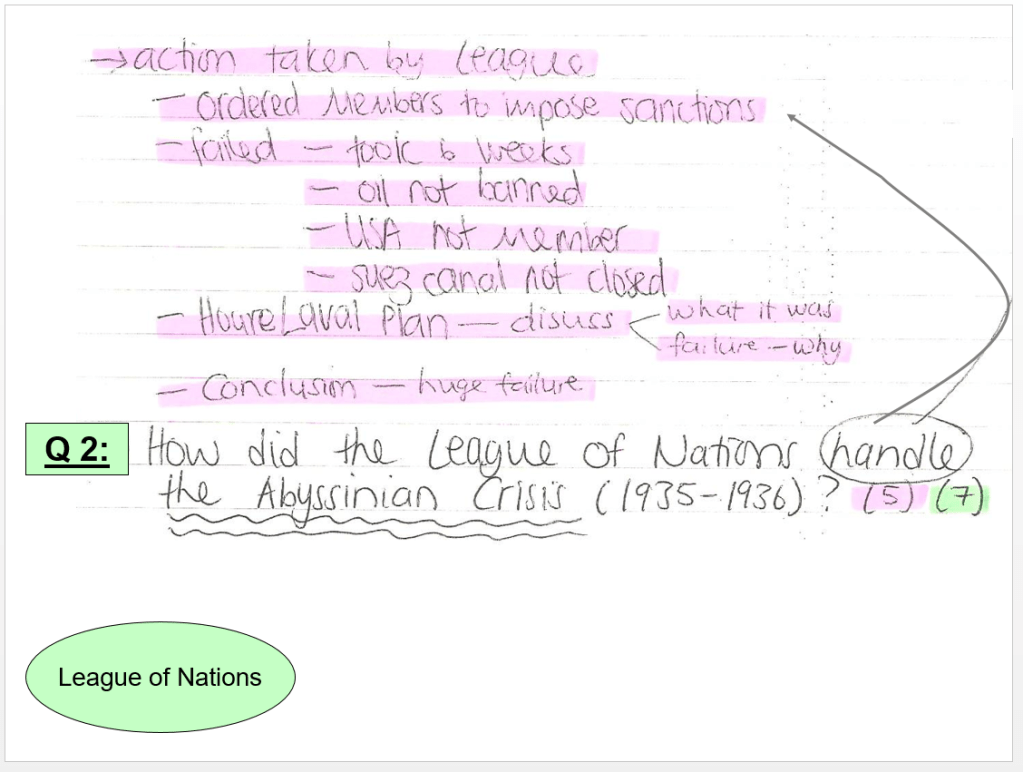 → action taken by League
— ordered Members to impose sanctions
— failed — took 6 weeks
— oil not banned
— USA not Member
— suez canal not closed
— Houre Laval Plan — disuss < what it was
failure — why
— Conclusion — huge failure
Q 2: How did the League of Nations handle
the Abyssinian Crisis (1935-1936)? (5) (7)
League of Nations